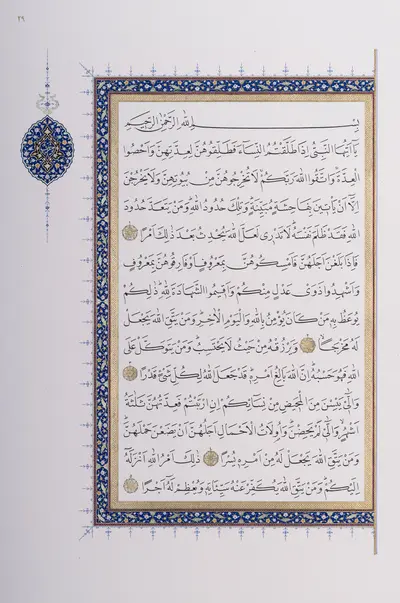 ٢٩
بسم الله الرحمن الرحيم
يا أيها النبي إذا طلقتم النساء فطلقوهن لعدتهن وأحصوا
العدة واتقوا الله ربكم لا تخرجوهن من بيوتهن ولا يخرجن
إلا أن يأتين بفاحشة مبينة وتلك حدود الله ومن يتعد حدود
الله فقد ظلم نفسه لا تدري لعل الله يحدث بعد ذلك أمرا
فإذا بلغن أجلهن فأمسكوهن بمعروف أو فارقوهن بمعروف
وأشهدوا ذوي عدل منكم وأقيموا الشهادة لله ذلكم
يوعظ به من كان يؤمن بالله واليوم الآخر ومن يتق الله يجعل
له مخرجا ويرزقه من حيث لا يحتسب ومن يتوكل على
الله فهو حسبه إن الله بالغ أمره قد جعل الله لكل شيء قدرا
واللائي يئسن من المحيض من نسائكم إن ارتبتم فعدتهن ثلاثة
أشهر واللائي لم يحضن وأولات الأحمال أجلهن أن يضعن حملهن
ومن يتق الله يجعل له من أمره يسرا ذلك أمر الله أنزله
إليكم ومن يتق الله يكفر عنه سيئاته ويعظم له أجرا